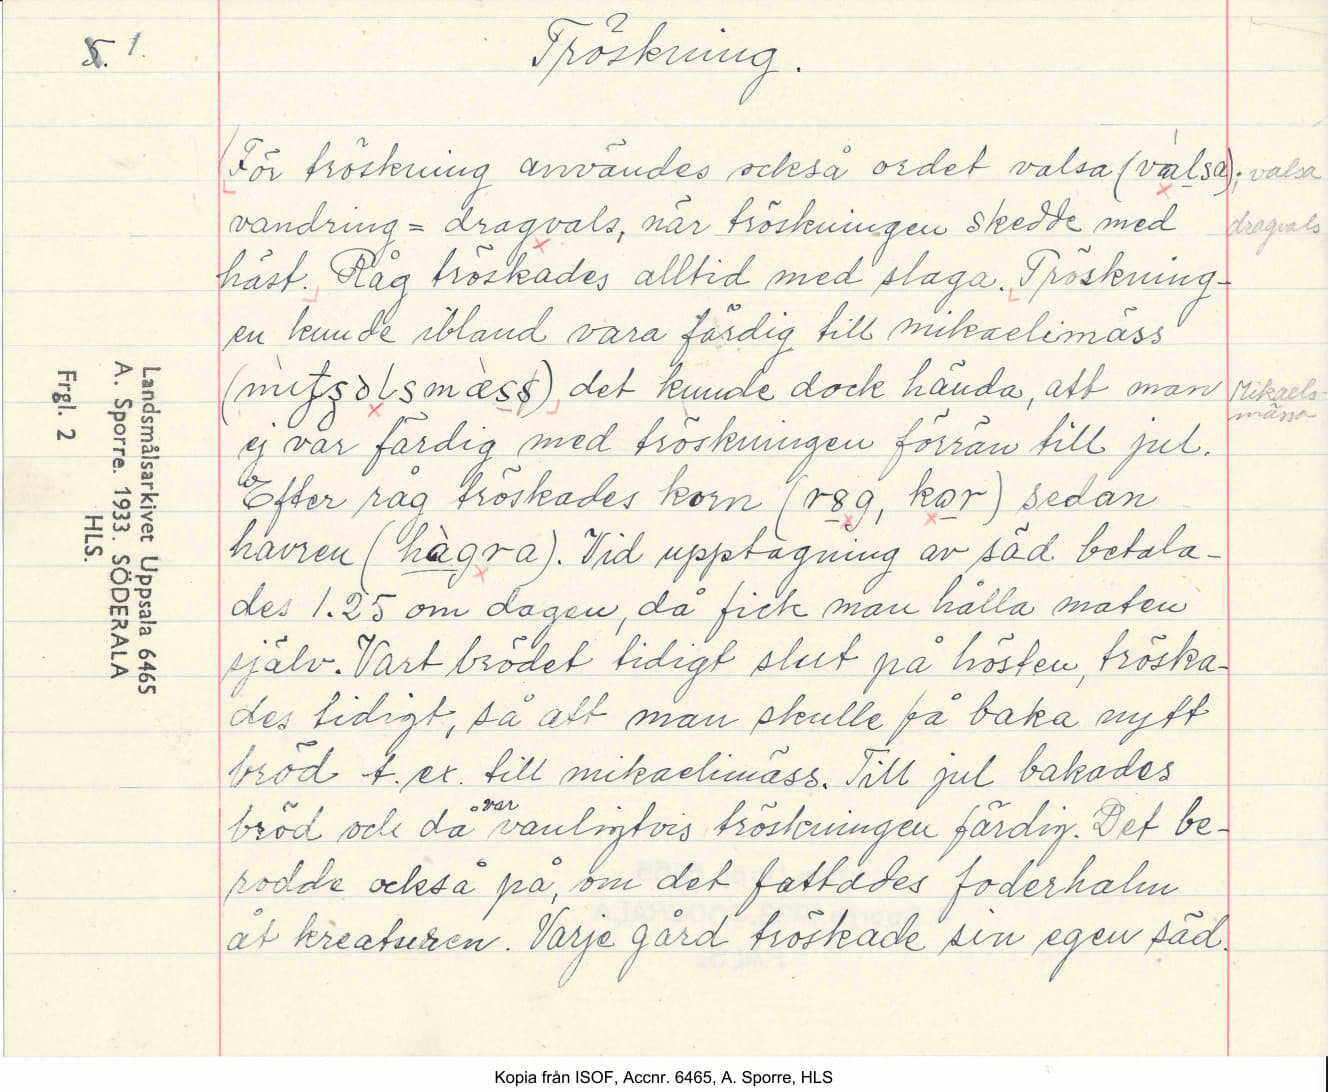 5. 1.
Tröskning.
För tröskning användes också ordet valsa (valsa); valsa
vandring = dragvals, när tröskningen skedde med dragvals
häst. Råg tröskades alltid med slaga. Tröskning-
en kunde ibland vara färdig till mikaelimäss
det kunde dock hända, att man Mikaels-
mässa
ej var färdig med tröskningen förrän till jul.
Efter råg tröskades korn (rɞg, kɑr) sedan
havren (hàgra). Vid upptagning av säd betala-
des 1.25 om dagen, då fick man hålla maten
själv. Vart brödet tidigt slut på hösten, tröska-
des tidigt, så att man skulle få baka nytt
bröd t. ex. till mikaelimäss. Till jul bakades
bröd och då var vanligtvis tröskningen färdig. Det be-
rodde också på, om det fattades foderhalm
åt kreaturen. Varje gård tröskade sin egen säd.
Landsmålsarkivet Uppsala 6465
A. Sporre. 1933. SÖDERALA
HLS.
Frgl. 2
Kopia från ISOF, Accnr. 6465, A. Sporre, HLS